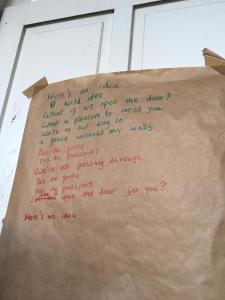 Here's an idea
A wild idea
What if we open the door?
What a pleasure to meet you
We're on our way to
a place without any walls
Pas de porte
pas de passeport
We're all passing through.
Pas de porte
pas de passport
Can I open the door for you?
Here's an idea